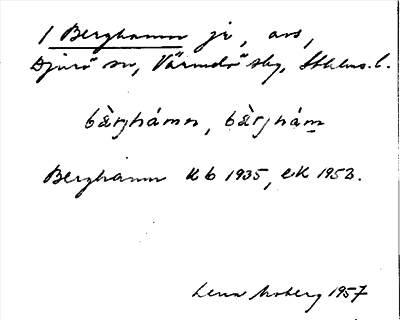 1 Berghamn jr, avs,
Djurö sn, Värmdö sbg, Sthlms. l.
bær̀jhámn, bær̀jhám
Berghamn Kb 1935, EK 1953.
Lena Moberg 1957